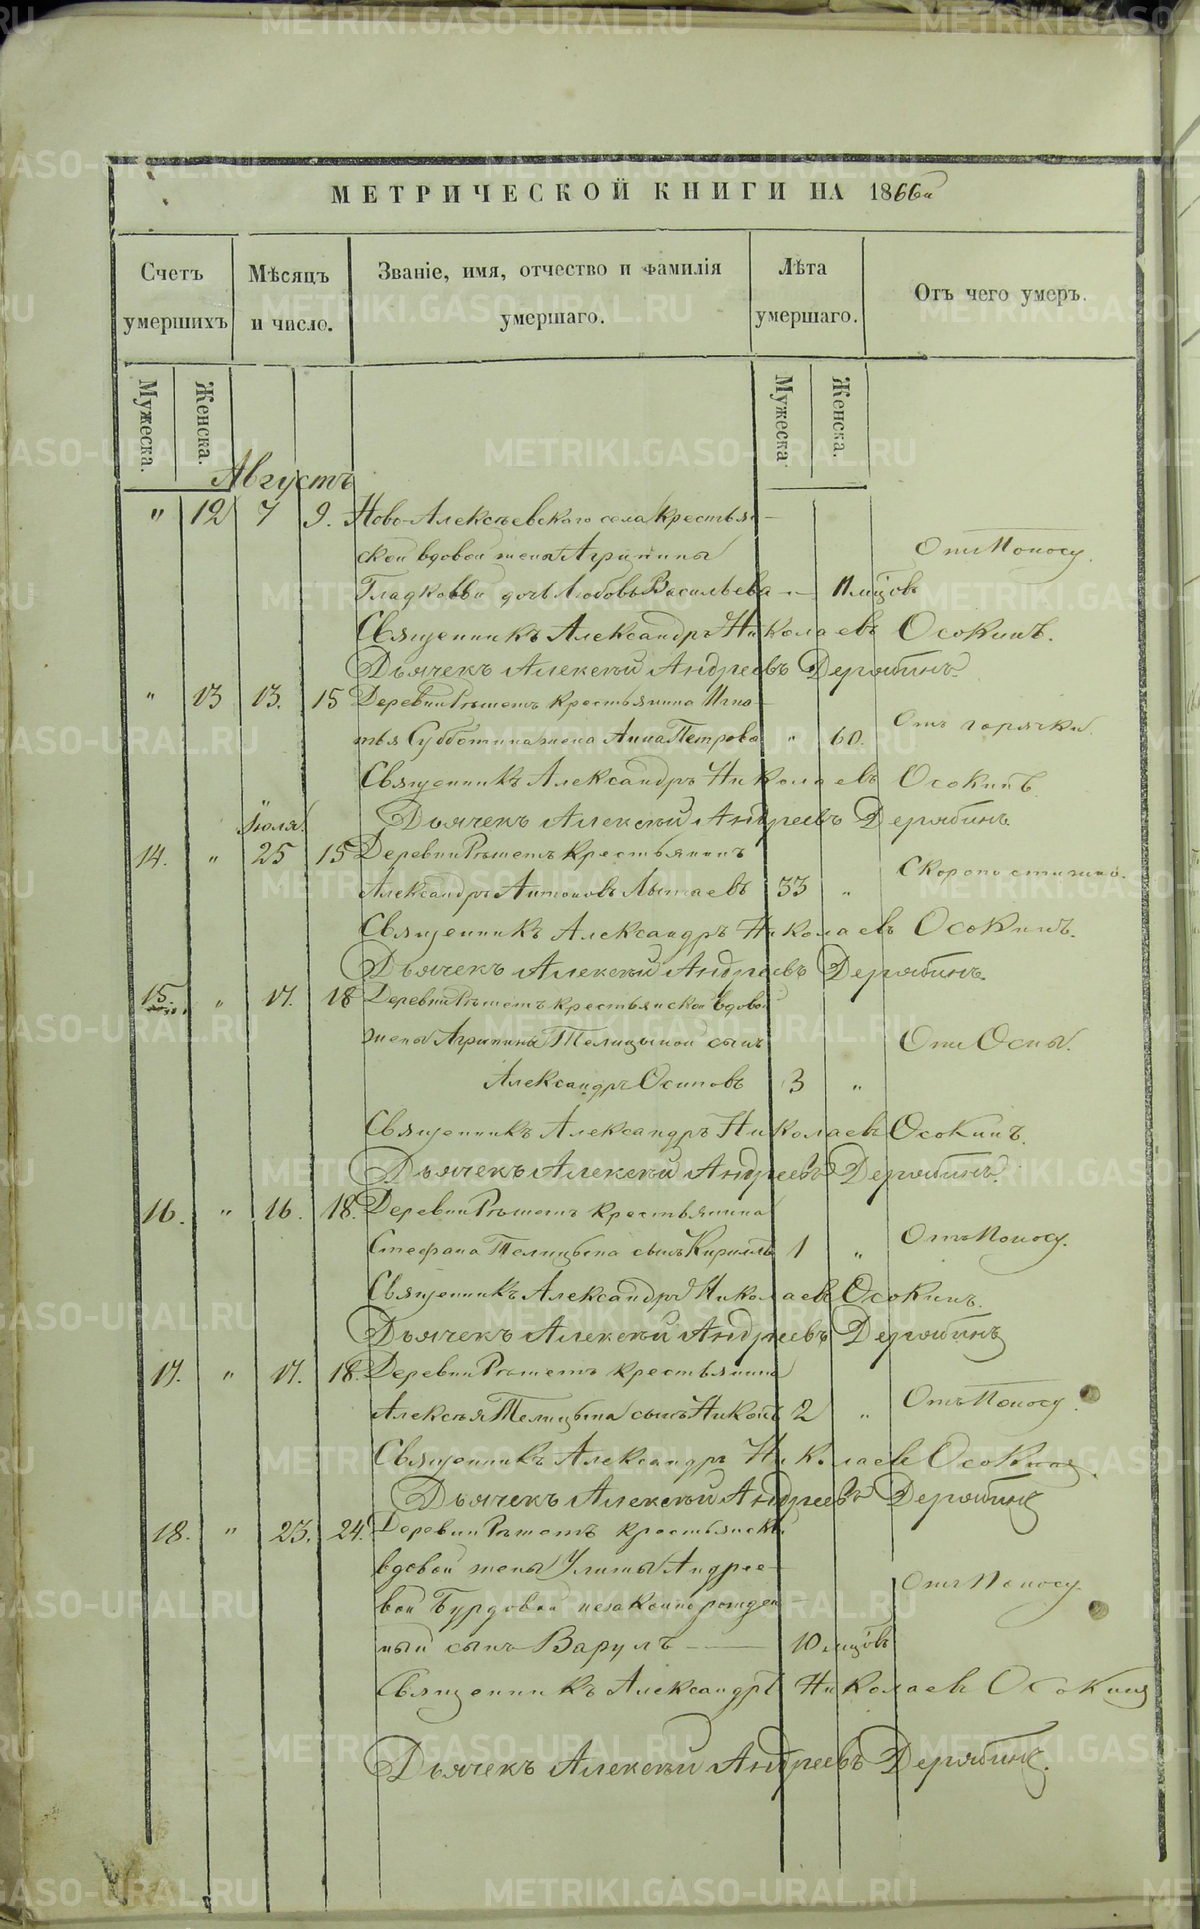 МЕТРИЧЕСКОЙ КНИГИ НА 1866й
Счетъ умершихъ
Мѣсяцъ и число.
Званіе, имя, отчество и фамилія умершаго.
Лѣта умершаго.
Отъ чего умеръ.
Мужеска.
Женска.
Мужеска
Женска.
Августъ
" 12 7 9. Ново-Алексѣевскаго села крестьян-
ской вдовой жены Агрипины Отъ Поносу.
Гладковой дочь Любовь Васильева — 11 мцовъ
Священникъ Александръ Николаевъ Осокинъ.
Дьячекъ Алексѣй Андреевъ Дерябинъ.
" 13 13. 15 Деревни Рѣшетъ крестьянина Игна-
тья Субботина жена Анна Петрова " 60. Отъ горячки.
Священникъ Александръ Николаевъ Осокинъ.
Дьячекъ Алексѣй Андреевъ Дерябинъ.
Іюля
14. " 25 15 Деревни Рѣшетъ крестьянинъ
Александръ Антоновъ 33 " Скоропостижно.
Священникъ Александръ Николаевъ Осокинъ.
Дьячекъ Алексѣй Андреевъ Дерябинъ.
15. " 17. 18 Деревни Рѣшетъ крестьянской вдовой
жены Агрипины Телицыной сынъ Отъ Оспы.
Александръ Осиповъ 3 "
Священникъ Александръ Николаевъ Осокинъ.
Дьячекъ Алексѣй Андреевъ Дерябинъ.
16. " 16. 18. Деревни Рѣшетъ крестьянина
Стефана Телицына сынъ Кириллъ 1 " Отъ Поносу.
Священникъ Александръ Николаевъ Осокинъ.
Дьячекъ Алексѣй Андреевъ Дерябинъ
17. " 17. 18. Деревни Рѣшетъ крестьянина
Алексѣя Телицына сынъ Никонъ 2 " Отъ Поносу.
Священникъ Александръ Николаевъ Осокинъ.
Дьячекъ Алексѣй Андреевъ Дерябинъ
18. " 23. 24. Деревни Рѣшетъ крестьянской
вдовой жены Улиты Андрее-
вой Бурдовой незаконнорожден- Отъ Поносу.
ный сынъ Варулъ — 10 мцовъ
Священникъ Александръ Николаевъ Осокинъ
Дьячекъ Алексѣй Андреевъ Дерябинъ.
METRIKI.GASO-URAL.RU